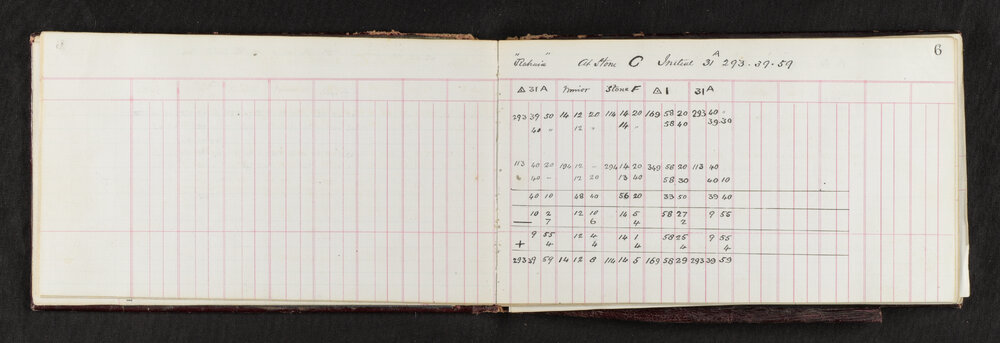 6
At Stone C Initial 31 A 293. 39. 59
△ 31 A Junior Stone F △ 1 31 A
293 39 50 14 12 20 114 14 20 169 58 20 293 40 "
40 " 12 " 14 " 58 40 39.30
113 40 20 194 12 - 294 14 20 349 58 20 113 40
" 40 - 12 20 13 40 58 30 40 10
40 10 48 40 56 20 33 50 39 40
10 2 12 10 14 5 58 27 9 55
— 7 6 4 2
9 55 12 4 14 1 58 25 9 55
+ 4 4 4 4 4
293 39 59 14 12 8 114 14 5 169 58 29 293 39 59